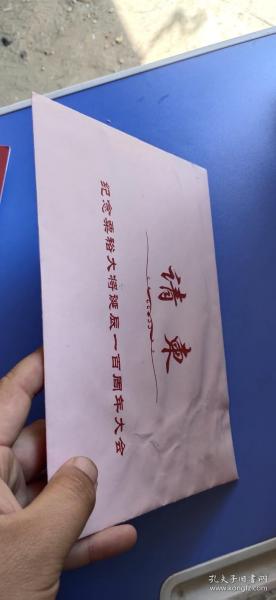 请柬
纪念粟裕大将诞辰一百周年大会
孔夫子旧书网
www.kongfz.com